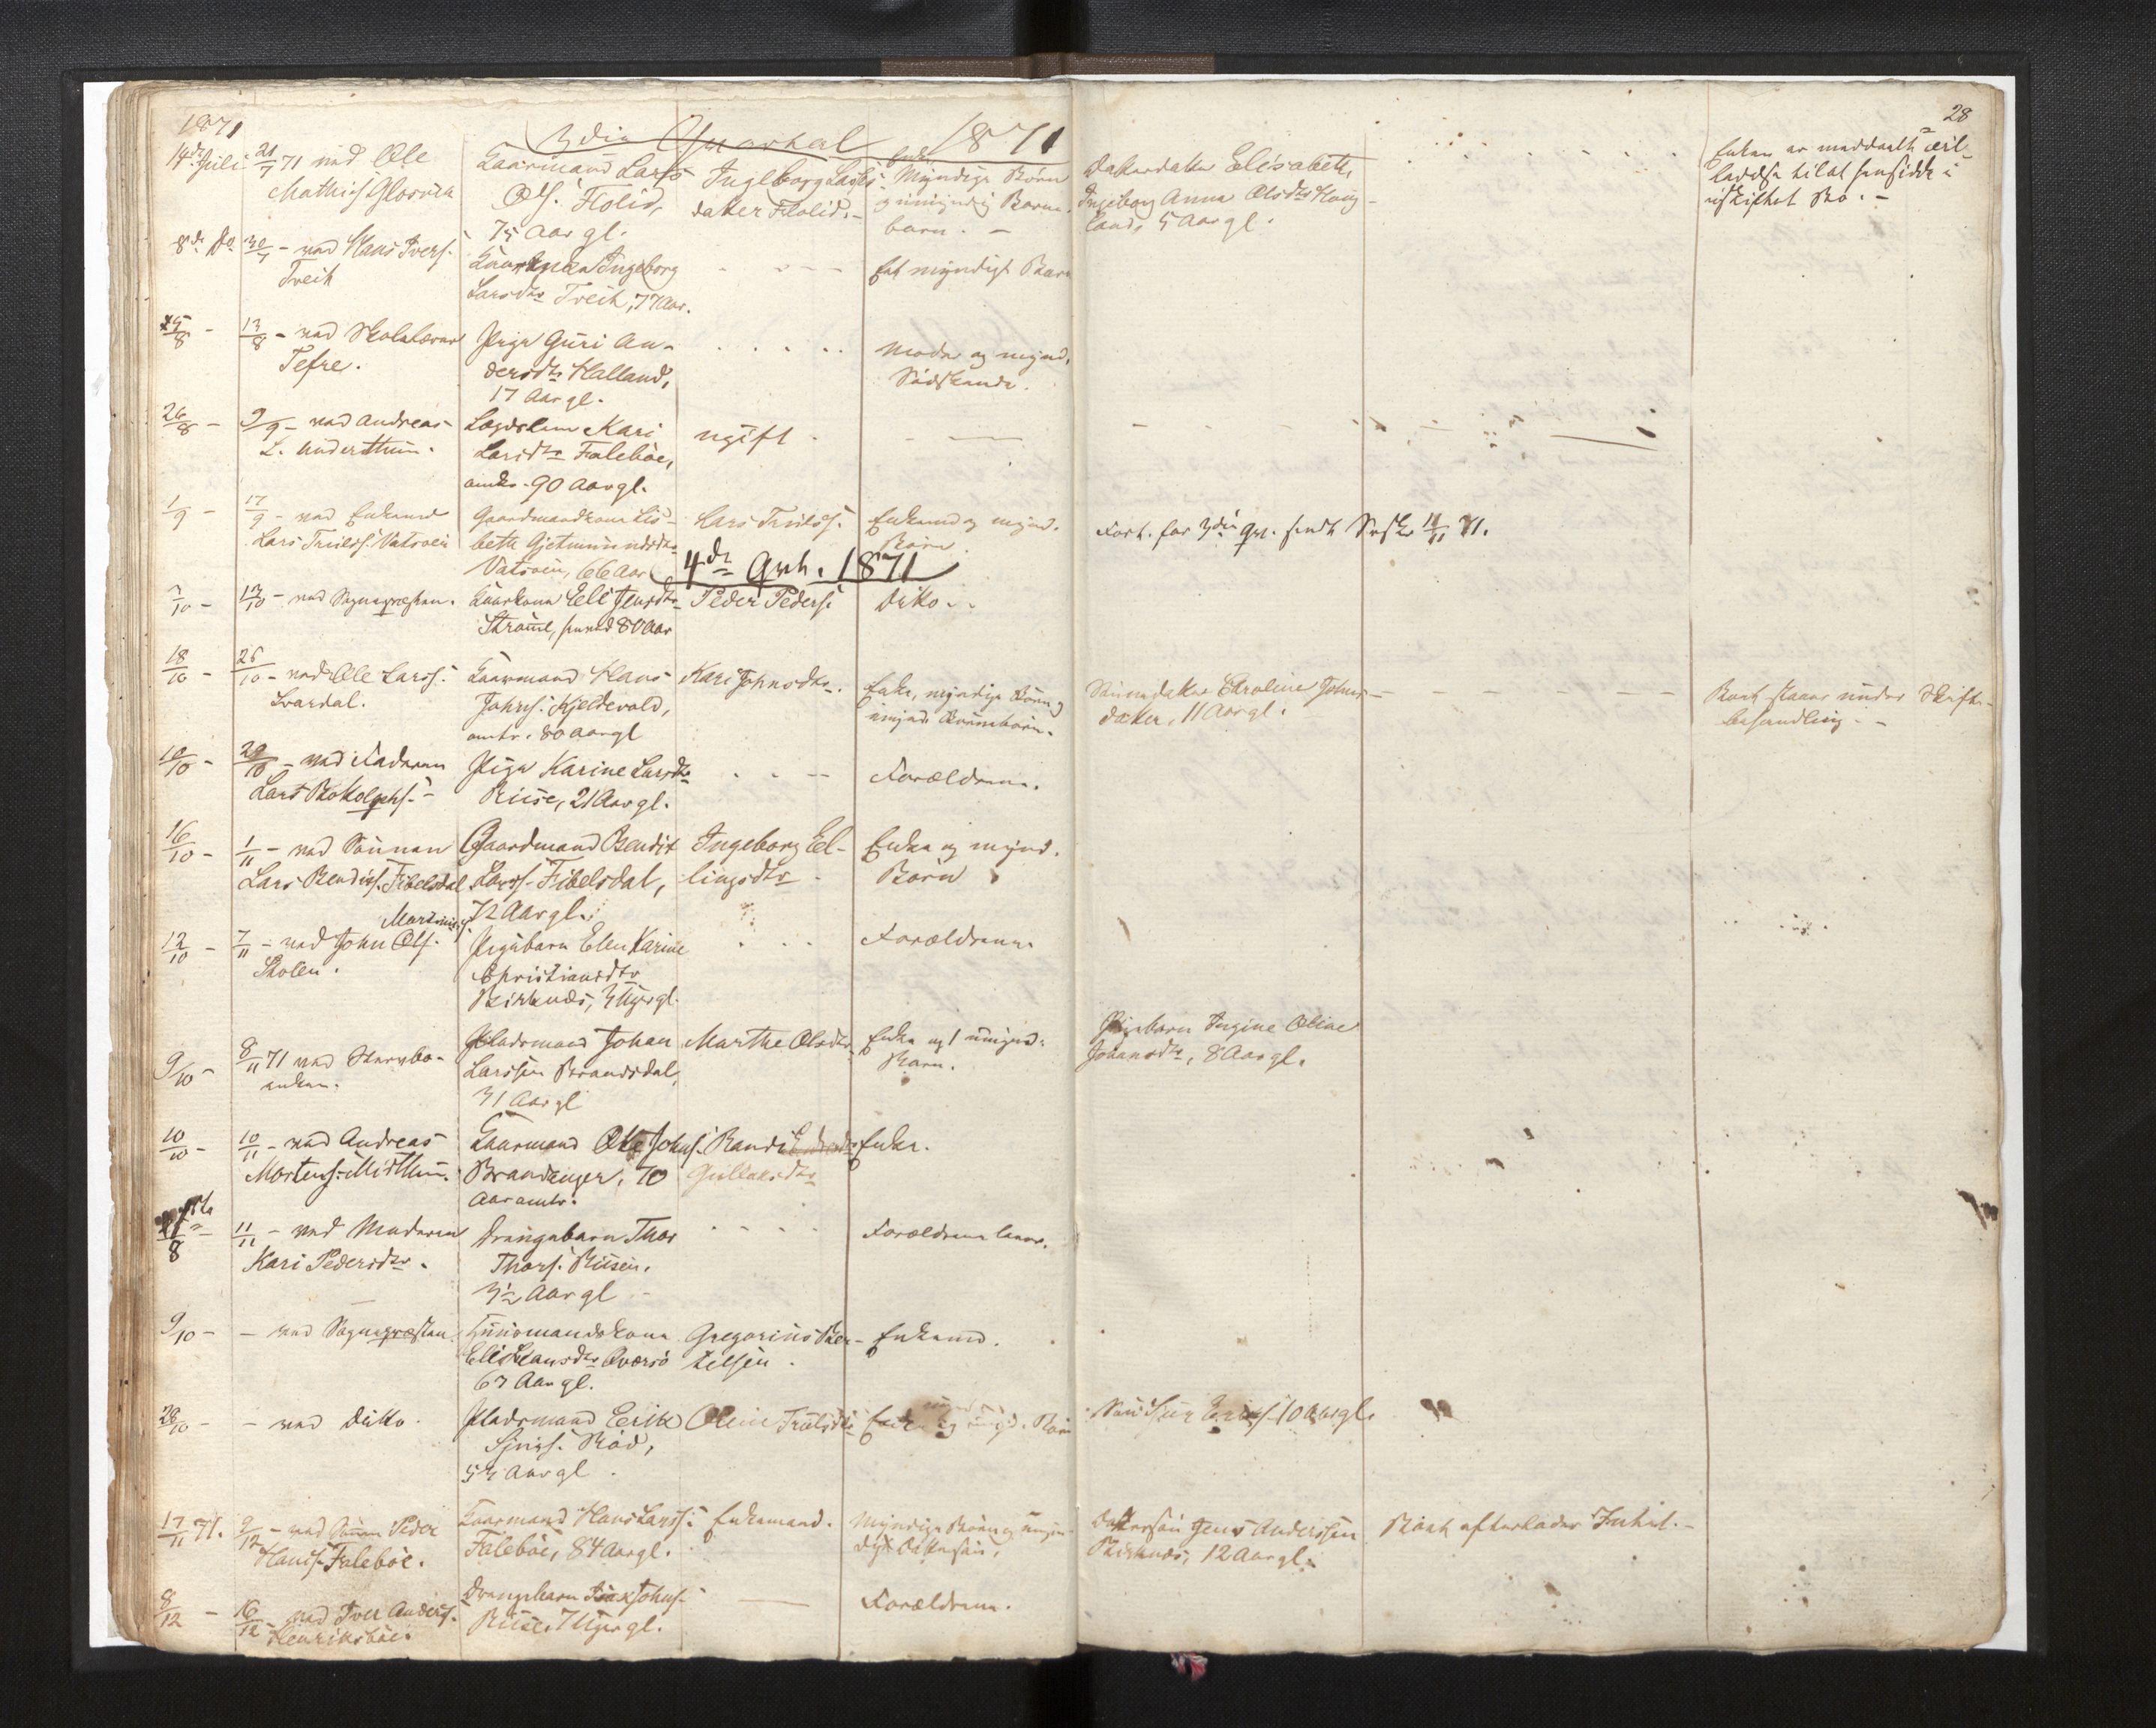 28
1871
3die Quartal 1871
14de Juli
21/7 71 ved Ole
Mathis Glosvik
Kaarmand Lars
Ols. Flolid,
75 Aar gl.
Ingeborg Lars-
datter Flolid.-
Enke
Myndige Børn
og umyndig Barne-
barn. -
Datterdatter Elisabeth
Ingeborg Anna Olsdtr Houg-
land, 5 Aar gl.
Enken er meddeelt
ladelse til at hensidde i
uskiftet Bo. -
8de Do
30/7 - ved Hans Ivers.
Treik
Ingeborg
Larsdtr Treik, 77 Aar.
Et myndigt Barn
/8 -
13/8 - ved Skolelærer
Tefre.
Pige Guri An-
dersdtr Halland,
17 Aar gl.
Moder og mynd.
Sødskende.
26/8 -
9/9 - ved Andreas
L. Underthun.
Lægdslem Kari
Larsdtr Falebøe,
omtr. 90 Aar gl.
ugift.
1/9 -
17/9 - ved Enkemd
Lars Truels. Vatsøen
Gaardmandkone Lis-
beth Gjetmundsdtr
Vatsøen, 66 Aar
Lars Truels.
Enkemd og mynd.
Børn.
Fort. for 3die Qv. sendt 71.
4de Qvt. 1871
7/10 -
13/10 - ved Sognepræsten.
Kaarkone Eli Jensdtr
Strømme, henved 80 Aar
Peder Peders.
Ditto.
18/10 -
25/10 - ved Ole Larss.
Svardal.
Kaarmand Hans
Johns. Kjeldevold,
omtr. 80 Aar gl
Kari Johnsdtr.
Enke, myndige Børn og
umynd. Børnebørn.
Sønnedatter Caroline Johns-
datter, 11 Aar gl.
Boet staaer under Skifte-
behandling. -
10/10 -
29/10 - ved Faderen
Lars Botolphs. -
Pige Karine Larsdtr
Riise, 21 Aar gl.
Forældrene.
16/10 -
1/11 - ved Sønnen
Lars Bendixs. Fibelsdal
Gaardmand Bendix
Larss. Fibelsdal,
72 Aar gl.
Ingeborg El-
lingsdtr
Enke og mynd.
Børn
12/10 -
Martinius
7/11 - ved John Ols.
Skolen.
Pigebarn Elen Karine
Christiansdtr
Birknes, 3 Uger gl.
Forældrene
9/10 -
8/11 71 ved Stervbo-
enken.
Pladsmand Johan
Larssen Brandsdal,
31 Aar gl
Marthe Olsdtr
Enke og 1 umynd.
Barn.
Pigebarn Ingine Oline
Johansdtr, 8 Aar gl.
10/10 -
10/11 - ved Andreas
Mortens. Midthun.
Kaarmand Ole Johns.
Brandanger, 70
Aar omtr.
Randi
Gullaksdtr
Enke.
/8
11/11 - ved Moderen
Kari Pedersdtr.
Drengebarn Thor
Thors. Riisen.
3½ Aar gl -
Forældrene lever.
9/10 -
- ved Sognepræsten.
Huusmandskone
Eli Hansdtr Qværsø
63 Aar gl.
Gregorius Ber-
telsen.
Enkemd.
28/10 -
- ved Ditto.
Pladsmand Erik
Sjurs. Bøe,
53 Aar gl.
Oline Trulsdtr
Enke og umynd. Børn
Søn Sjur Eriks. 10 Aar gl.
17/11 71.
9/12 - ved Sønnen Peder
Hanss. Falebøe.
Kaarmand Hans Larss.
Falebøe, 84 Aar gl.
Enkemand.
Myndige Børn og umyn-
digt Dattersøn,
Dattersøn Jens Anderssen
Birknes, 12 Aar gl.
Boet efterlader Intet. -
8/12 -
16/12 - ved Iver Anders.
Henriksbøe.
Drengebarn Isak Johns.
Riise, 7 Uger gl.
Forældrene.